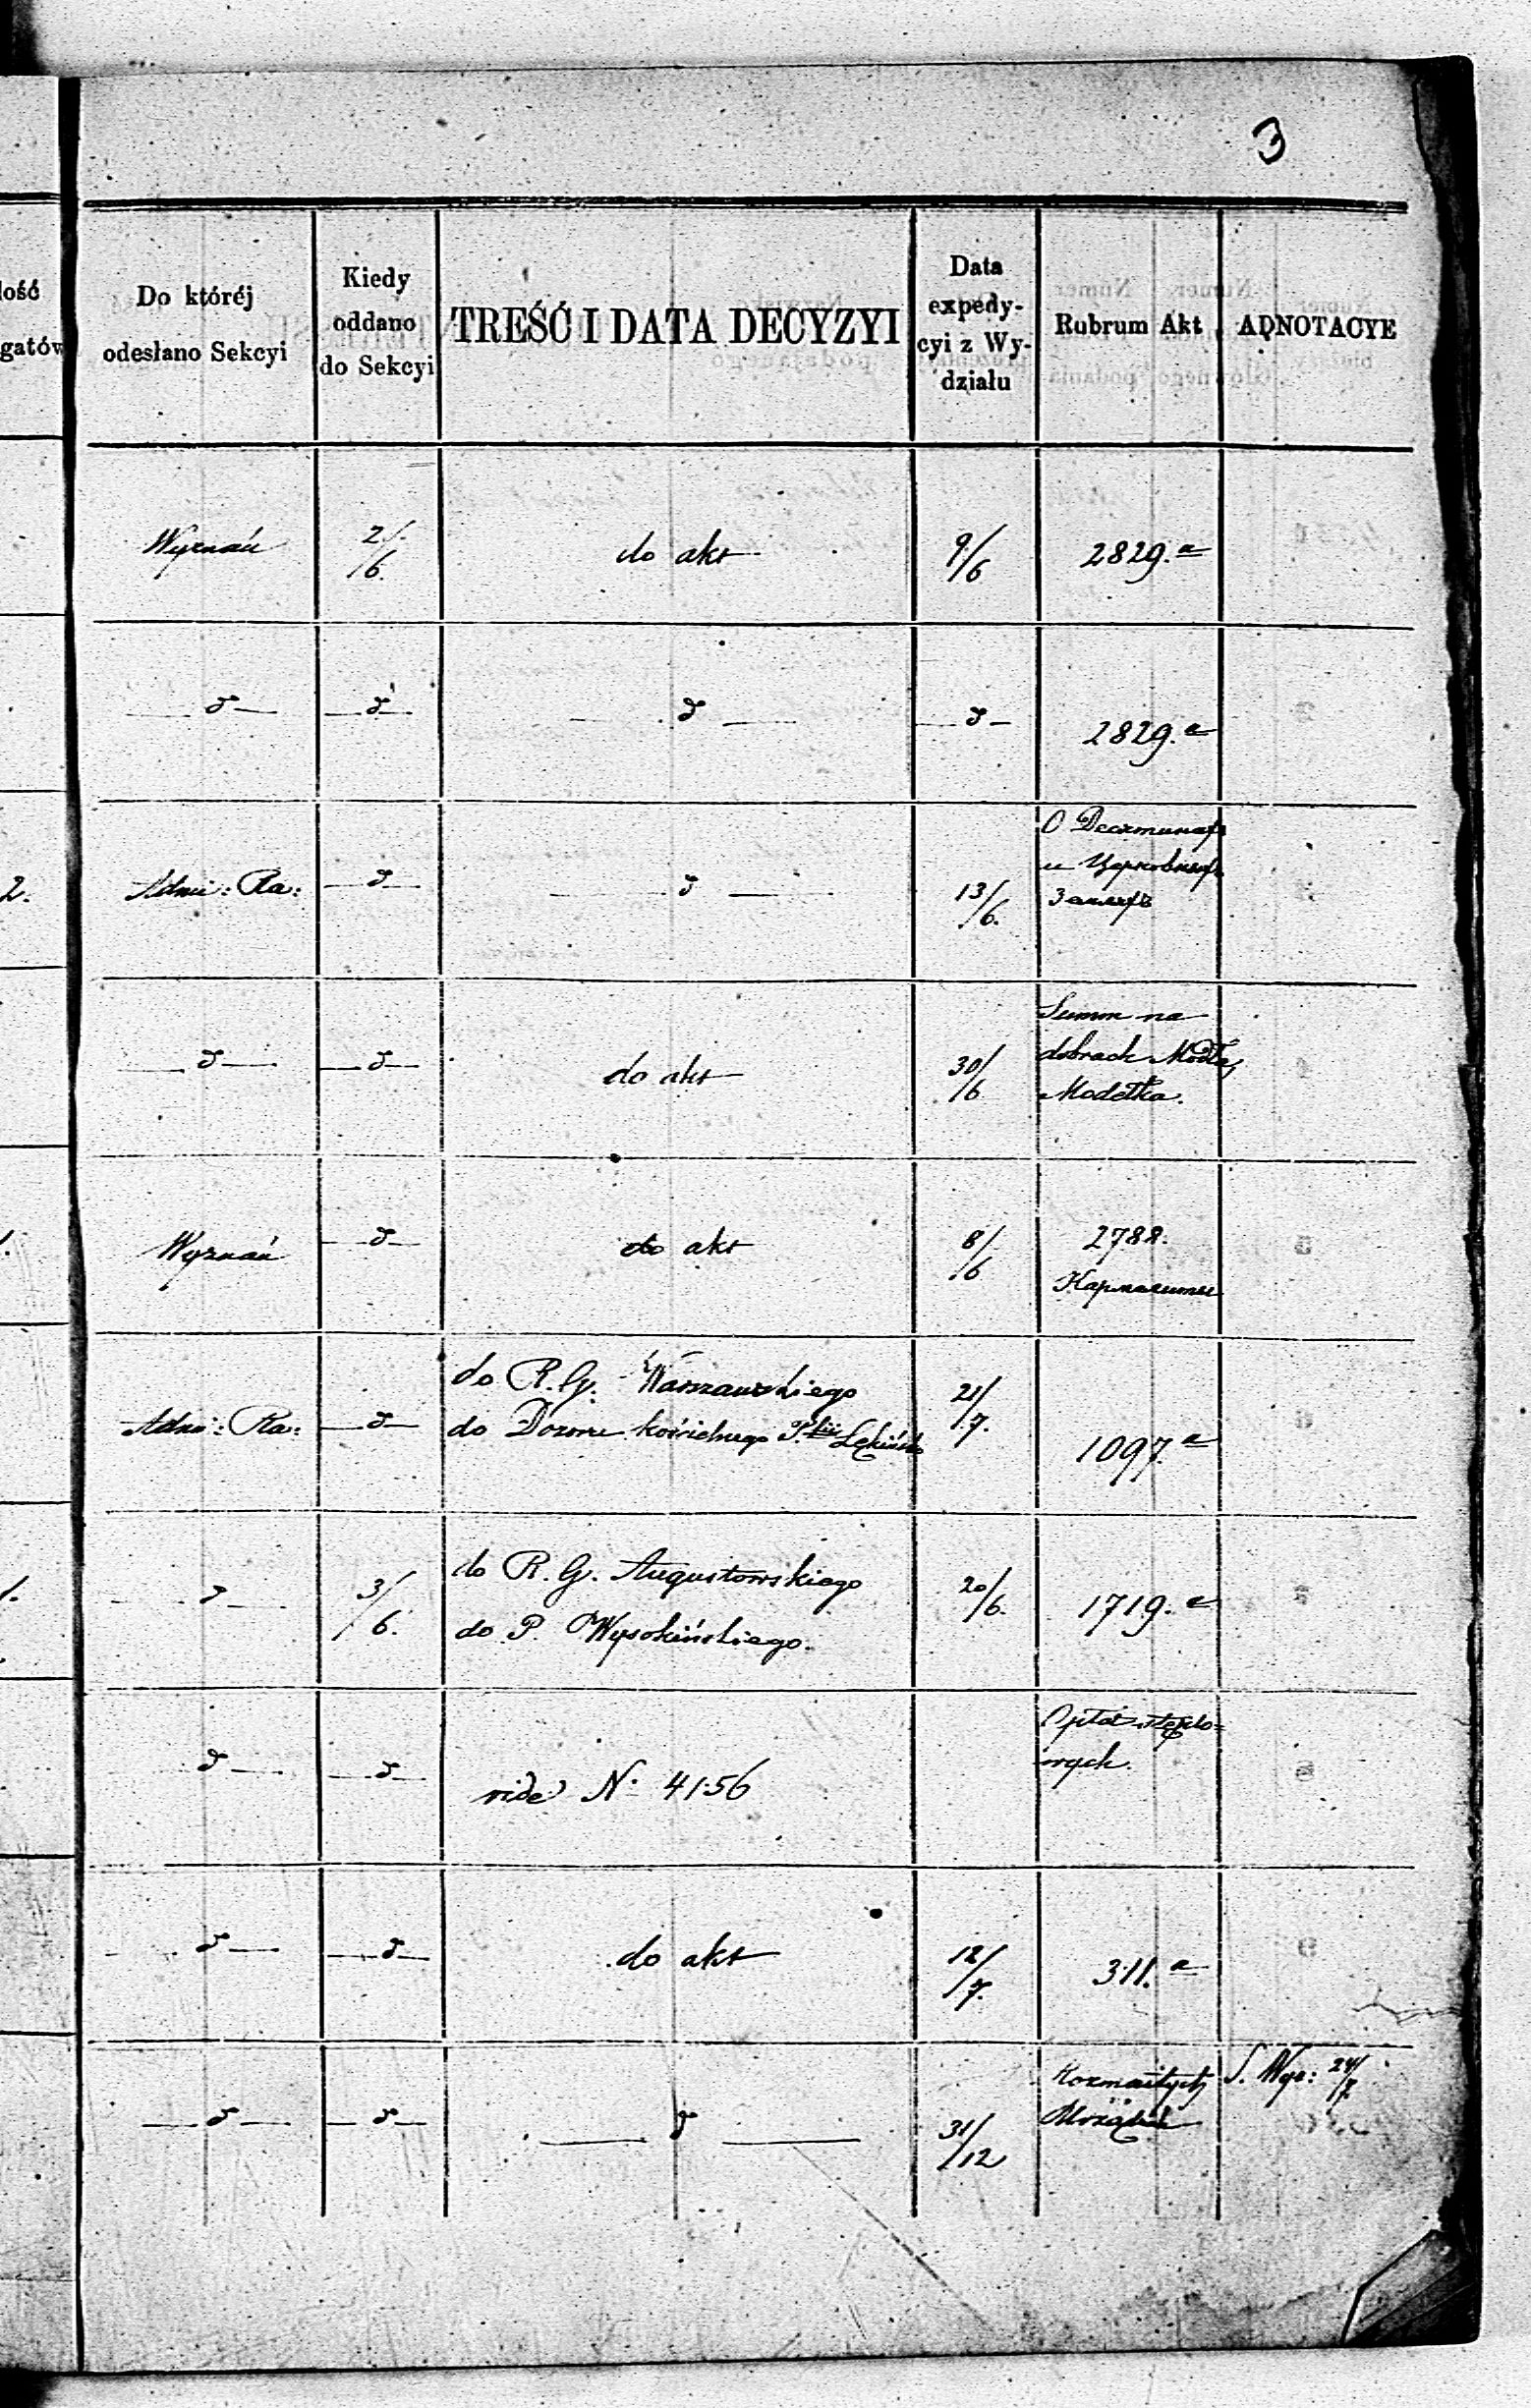 3
lość
gatów
Do któréj
odesłano Sekcyi
Kiedy
oddano
do Sekcyi
TREŚĆ I DATA DECYZYI
Data
expedy-
cyi z Wy-
działu
Rubrum Akt
ADNOTACYE
Wyznań 2/6 do akt 9/6 2829.a
d d d d 2829.a
2. Admi: Ra: d d 13/6.
О Десятинахъ
и Церковныхъ
Земляхъ
d d do akt 30/6
Summ na
dobrach Modła,
Modełka.
1. Wyznań d do akt 8/6 2788.
Кармелиты
Admi: Ra: d
do R. G. Warszawskiego
do Dozoru kościelnego P.lii
21/7. 1097.a
1. d 3/6.
do R. G. Augustowskiego
do P. Wysokińskiego.
20/6. 1719.a
d d vide N. 4156
Opłat stęplo-
wych.
d d do akt 12/7. 311.a
d d d 31/12
Rozmaitych
S. Wyz: 24/7.